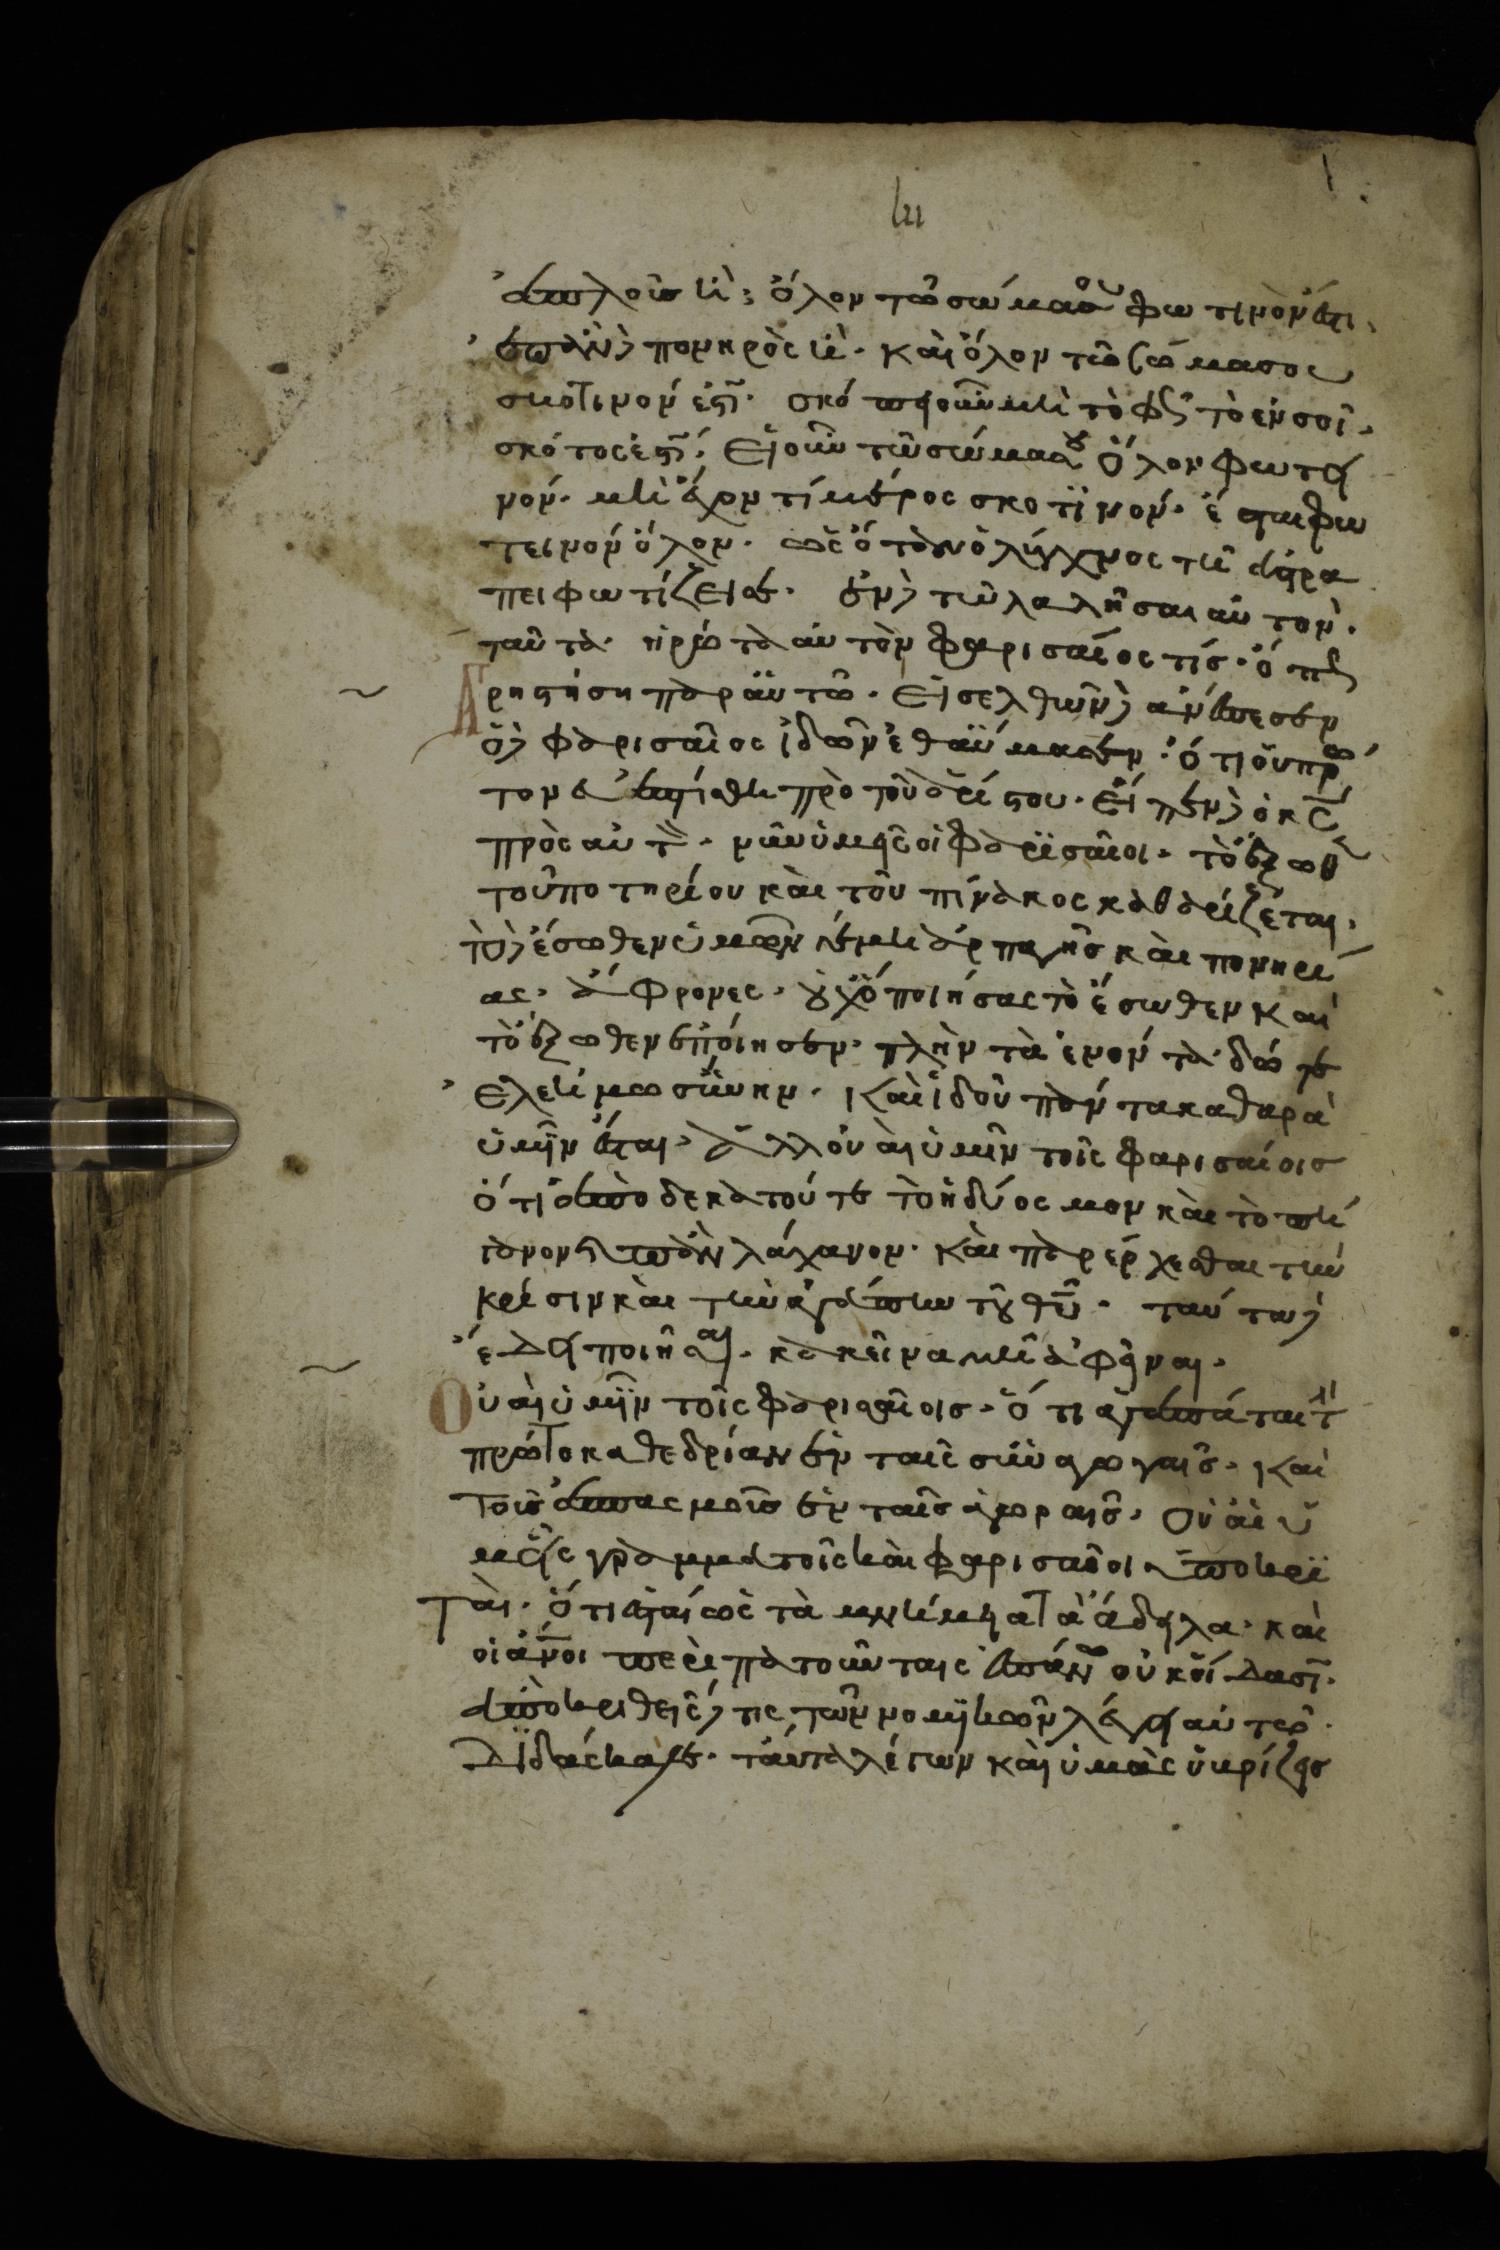 ἁπλοῦς ἦ· ὅλον τὸ σῶμά σου φωτινὸν ἔσται·
ἐπὰν δὲ πονηρὸς ἦ· καὶ ὅλον τὸ σῶμα σου
σκοτινόν ἐστι· σκόπει οὖν μὴ τὸ φῶς τὸ ἐν σοὶ·
σκότος ἐστί· Εἰ οὖν τὸ σῶμα σου ὅλον φωτει
νόν· μὴ ἔχον τί μέρος σκοτϊνόν· ἔσται φω
τεινόν ὅλον· ὡς ὁ λύχνος τῆ ἀστρα
πει φωτίζει σε· ἐν δὲ τῶ λαλῆσαι αὐτὸν·
ταῦτα· ἠρώτα αὐτὸν φαρισαίος τίς· ὅπως
ἀρηστήση παρ αὐτῶ· Εἰσελθὼν δὲ ἀνέπεσεν
ὁ δὲ φαρισαῖος ἰδὼν ἐθαύμασεν· ὅτι οὐ πρῶ
τον ἐβαπτίσθη πρὸ τοῦ ἀρίστου· Εἶπεν δὲ ὁ κς
πρὸς αὐτὸν· νῦν ὑμεῖς οἱ φαρϊσαῖοι· τὸ ἔξωθεν
τοῦ ποτηρίου καὶ τοῦ πίνακος καθαρίζεται·
τὸ δὲ ἔσωθεν ὑμῶν γέμει ἁρπαγῆς καὶ πονηρί
ας· ἄφρονες· οὐχ ὁ ποιήσας τὸ ἔσωθεν καὶ
τὸ ἔξωθεν ἐποίησεν· πλὴν τὰ ἐνον τὰ δότε
ἐλεημωσύνην· Καὶ ἰδοῦ πάντα καθαρὰ
ὑμῖν ἔσται· ἀλλ οὐαὶ ὑμῖν τοῖς φαρισαίοις
ὅτι ἀποδεκατούτε τὸ ἡδύοσμον καὶ τὸ πή
γανον καὶ πὰν λάχανον· καὶ παρέρχεσθαι τὴν
κρίσιν καὶ τὴν ἀγάπην τοῦ θυ· ταύτα δὲ
ἔδει ποιῆσαι· κακεῖνα μὴ ἀφῖναι·
Οὐαὶ ὑμῖν τοῖς φαρισαῖοις· ὅτι ἀγαπάται τὴν
πρώτοκαθεδρίαν ἐν ταῖς συναγωγαῖς· καὶ
τοὺς ἀσπασμοὺς ἐν ταῖς ἀγοραῖς· Οὐαὶ ὑ
μεῖς γραμματοῖς καὶ φαρισαῖοι ὑποκρϊ
ταὶ· ὅτι ἐσταὶ ὡς τὰ μνημεῖατα ἄδηλα· καὶ
οἱ ἄνοι περιπατοῦνταις ἐπάνω οὐκ οἴδασι·
ἀποκριθεὶς δὲ τις τῶν νομικῶν λέγει αὐτῶ·
Διδάσκαλε· ταύτα λέγων καὶ ὑμὰς ὑβρίζεις